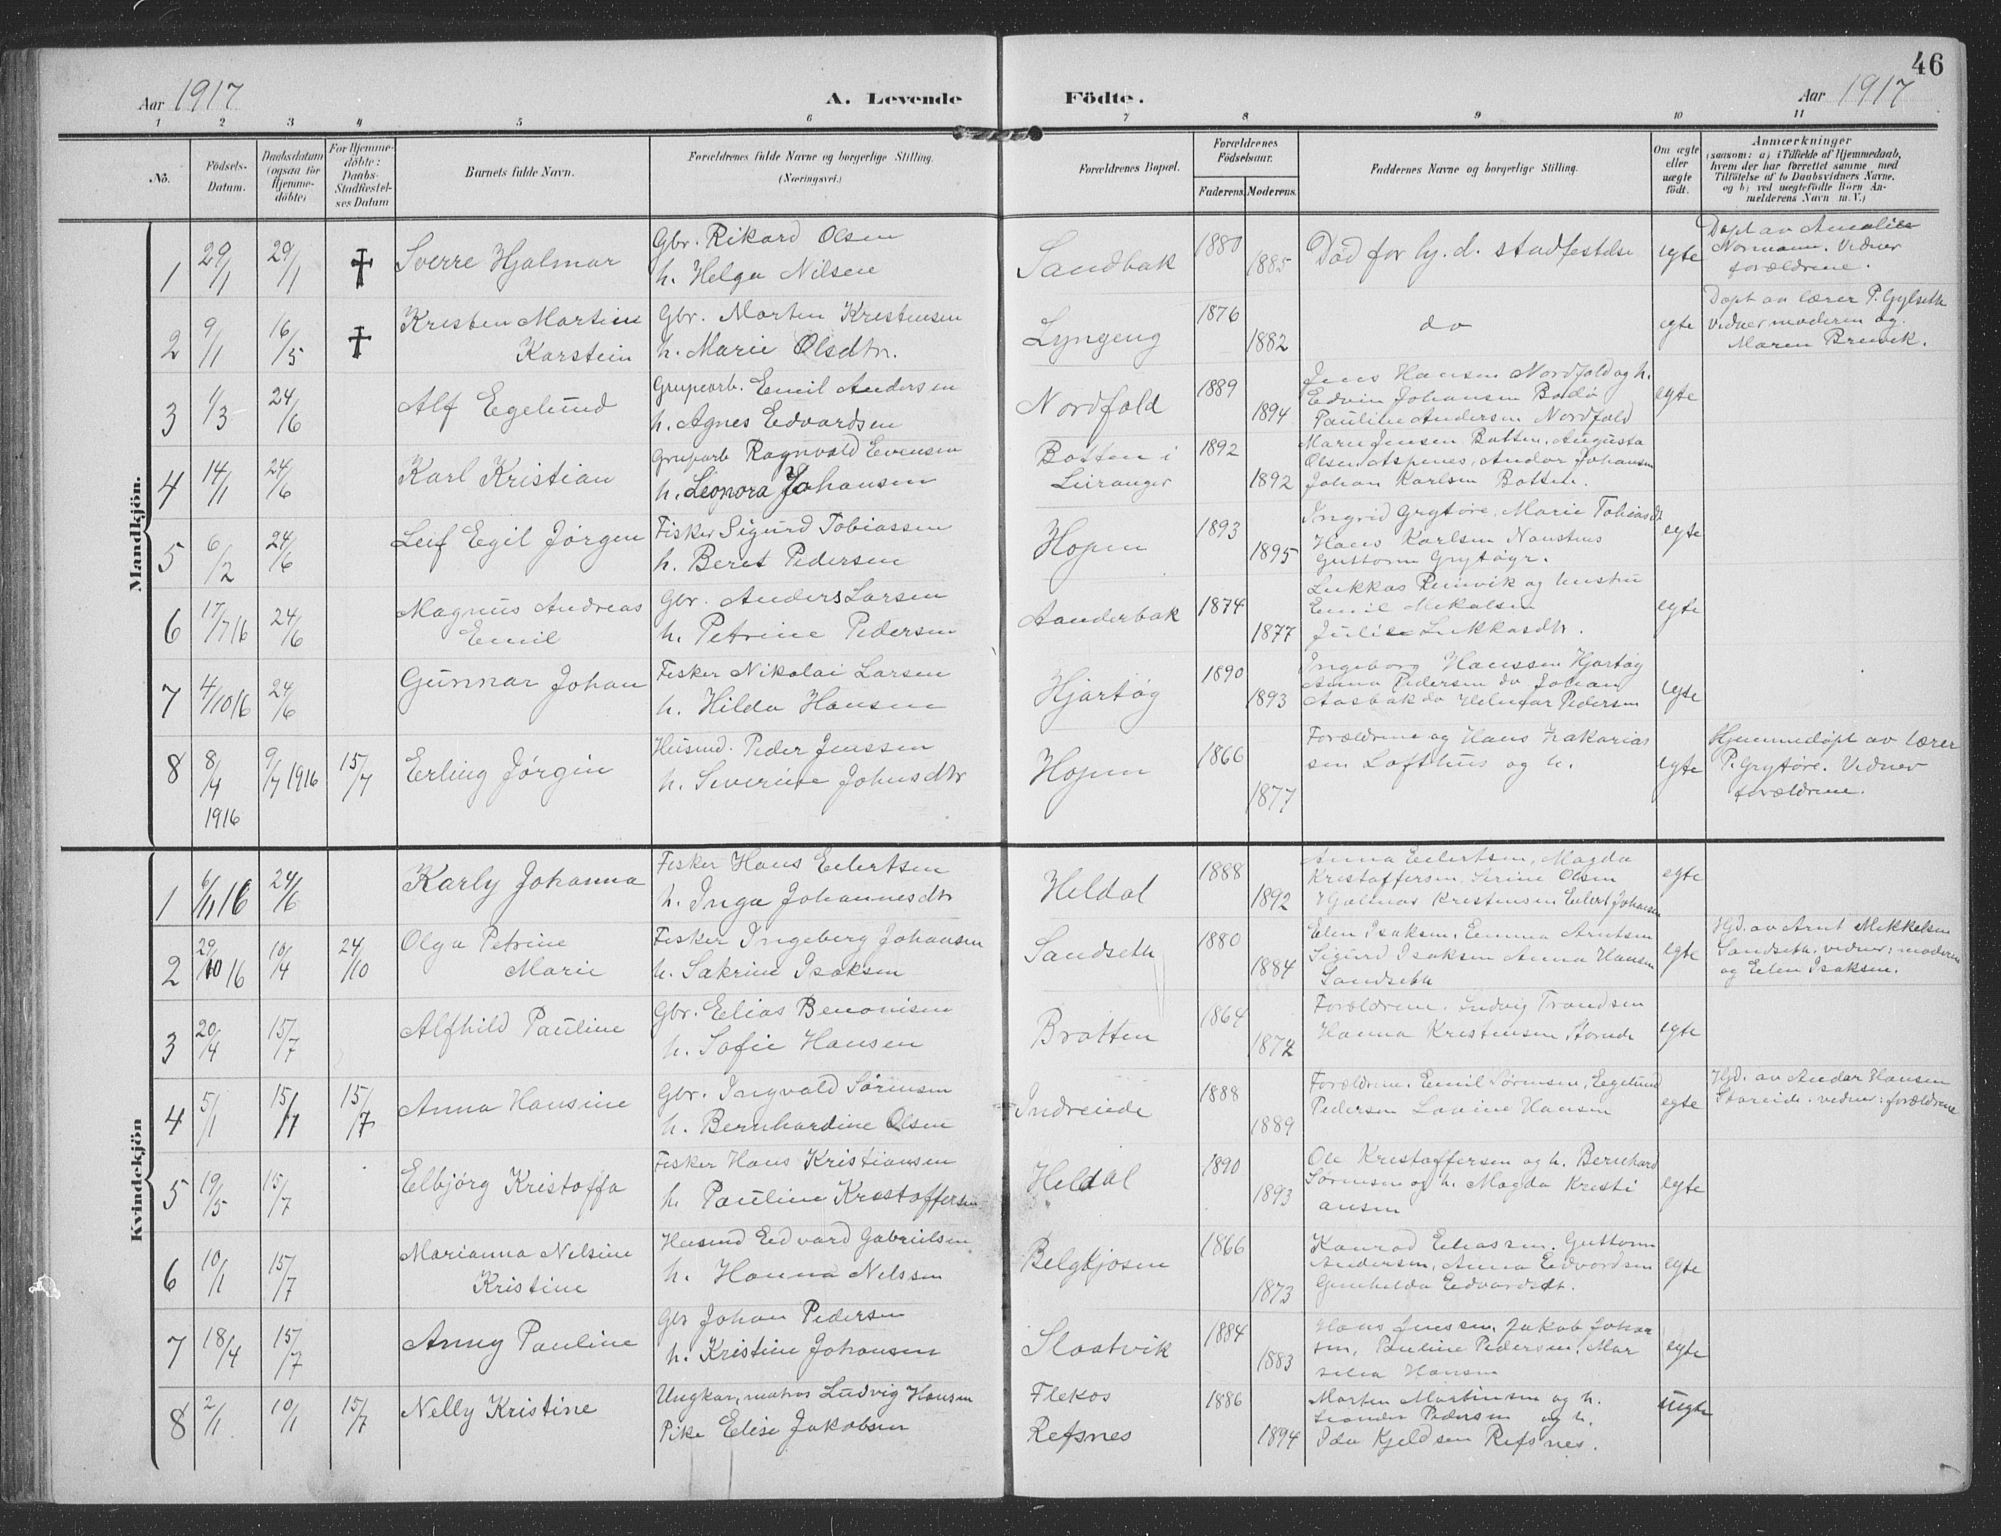 46
Aar 1917 A. Levende Födte. Aar 1917
1 2 3 4 5 6 7 8 9 10 11
No. Födsels-Datum. Daabsdatum (ogsaa for Hjemme-döbte) For Hjemme-döbte: Daabs-Stadfæstel-ses Datum Barnets fulde Navn. Forældrenes fulde Navne og borgerlige Stilling. (Næringsvei.) Forældrenes Bopæl. Forældrenes Födselsaar. Faderens. Moderens. Faddernes Navne og borgerlige Stilling. Om ægte eller uægte födt. Anmærkninger (saasom: a) i Tilfælde af Hjemmedaab, hvem der har forrettet samme med Tilföielse af to Daabsvidners Navne. og b) ved uægtefödte Börn An-melderens Navn m. V.)
Mandkjön.
1 29/1 29/1 † Sverre Hjalmar Gbr. Rikard Olsen
h. Helga Nilsen Sandbak 1880 1885 Död for hj. d. stadfestelse egte Döpt av Amalie
Normann. Vidner
forældrene.
2 9/1 16/5 † Kristen Martin
Karstein Gbr. Morten Kristensen
h. Marie Olsdtr. Lyngeng 1876 1882 do egte Döpt av lærer P. Gylseth
Vidner moderen og
Maren Brevik.
3 1/3 24/6 Alf Egelund Grupearb. Emil Andersen
h. Agnes Edvardsen Nordfold 1889 1894 Jens Hansen Nordfold og h.
Edvin Johansen Bodö
Pauline Andersen Nordfold egte
4 14/1 24/6 Karl Kristian Gruparb Ragnvald Evensen
h. Leonora Johansen Botten i
Leiranger 1892 1892 Marie Jensen Botten, Augusta
Olsen Aspenes, Andor Johansen
Johan Karlsen Botten. egte
5 6/2 24/6 Leif Egil Jörgen Fisker Sigurd Tobiassen
h. Beret Pedersen Hopen 1893 1895 Ingrid Grytöre, Marie Tobiasdt
Hans Karlsen
Guttorm Grytöyr. egte
6 17/7 16 24/6 Magnus Andreas
Emil Gbr. Anders Larsen
h. Petrine Pedersen Aanderbak 1874 1877 Lukkas Reinvik og hustru
Emil Mikalsen
Julie Lukkasdtr. egte
7 4/10 16 24/6 Gunnar Johan Fisker Nikolai Larsen
h. Hilda Hansen Hjartöy 1890 1893 Ingeborg Hanssen Hjartöy
Anna Pedersen do Johan
Aasbak do Helmar Pedersen egte
8 8/4 1916 9/7 1916 15/7 Erling Jörgen Husmd. Peder Jenssen
h. Severine Johnsdtr Hopen 1866 1877 Forældrene og Hans Zakarias
sen Lofthus og h. egte Hjemmedöpt av lærer
P. Grytöre. Vidner
forældrene.
Kvindekjön
1 6/11 16 24/6 Karly Johanna Fisker Hans Eilertsen
h. Inga Johannesdtr Heldal 1888 1892 Anna Eilertsen, Magda
Kristoffersen, Serine Olsen
Hjalmar Kristensen Eilert Johansen egte
2 29/10 16 10/4 24/10 Olga Petrine
Marie Fisker Ingeberg Johansen
h. Sakrine Isaksen Sandseth 1880 1884 Elen Isaksen, Emma Arntsen
Sigurd Isaksen Anna Hansen
Sandseth egte Hjd. av Arnt Mikkelsen
Sandseth, vidner: moderen
og Elen Isaksen.
3 20/4 15/7 Alfhild Pauline Gbr. Elias Benonisen
h. Sofie Hansen Bratten 1864 1872 Forældrene. Ludvig Trondsen
Hanna Kristensen, egte
4 5/1 15/1 15/7 Anna Hansine Gbr. Ingvald Sörensen
h. Bernhardine Olsen Indreeide 1888 1889 Forældrene. Emil Sörensen, Egelund
Pedersen Lovine Hansen egte Hjd. av Andor Hansen
Storeide. vidner: forældrene
5 19/5 15/7 Elbjörg Kristoffa Fisker Hans Kristiansen
h. Pauline Kristoffersen Heldal 1890 1893 Ole Kristoffersen og h. Bernhard
Sörensen og h. Magda Kristi
ansen egte
6 10/1 15/7 Marianna Nelsine
Kristine Husmd Edvard Gabrielsen
h. Hanna Nelssen Belgkjosen 1866 1873 Konrad Eliassen. Guttorm
Andersen, Anna Edvardsen
Gunhelda Edvardsdt. egte
7 18/4 15/7 Anny Pauline Gbr Johan Pedersen
h. Kristine Johansen Slaatvik 1884 1883 Hans Jenssen, Jakob Johan
sen, Pauline Pedersen, Mar
selia Hansen egte
8 2/1 10/1 15/7 Nelly Kristine Ungkar, matros Ludvig Hansen
Pike Elise Jakobsen Flekos
Refsnes 1886 1894 Morten Martinsen og h.
Leonder Pedersen og h.
Ida Kjeldsen Refsnes. uegte